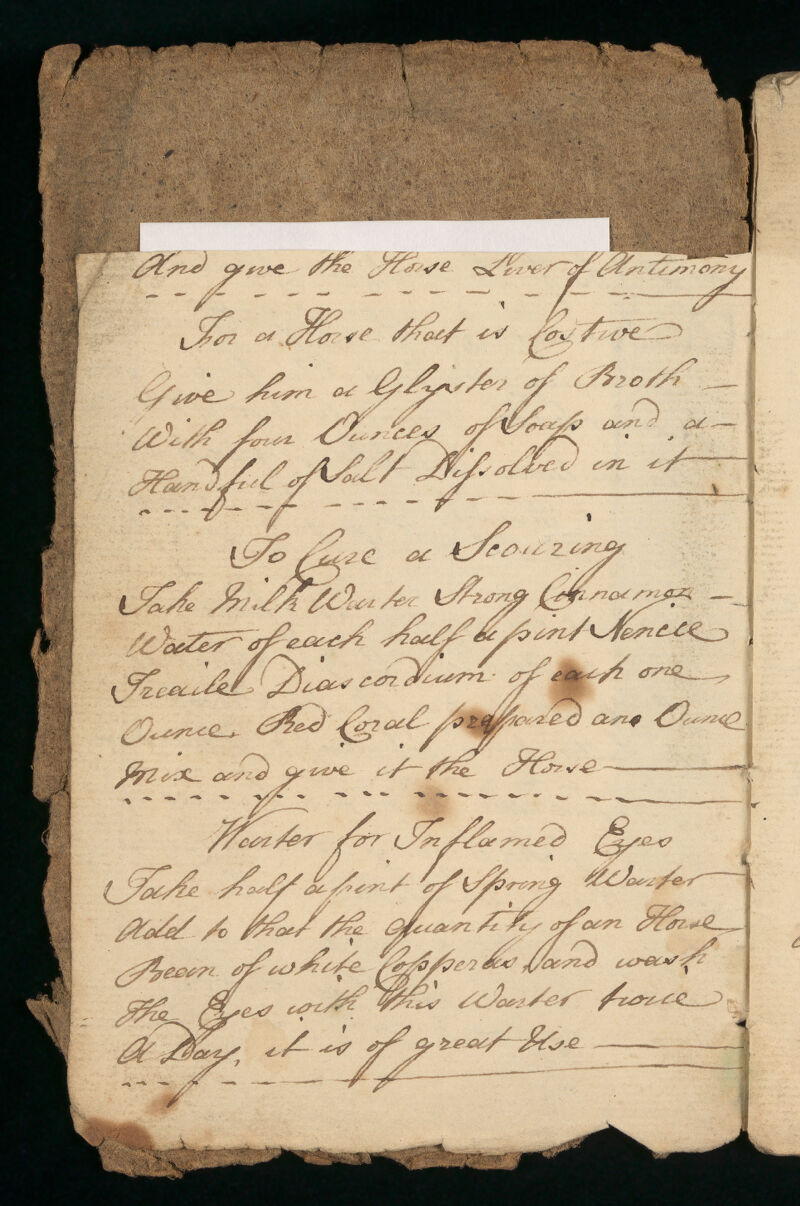 And give the Horse Liver of Antimony
For a Horse that is Costive
Give him a Glyster of Broth
With four Ounces of Soap and a
Handful of Salt Dissolved in it
To Cure a Scouring
Take Milk Warter Strong Cinnamon
Water of each half a pint Venice
Treacle Diascordium of each one
Ounce. Red Coral prepared an Ounce
Mix and give it the Horse
Warter for Inflamed Eyes
Take half a pint of Spring Warter
Add to that the quantity of an Horse
Bean of white Copperas, and wash
the Eyes with this Warter twice
A Day, it is of great Use